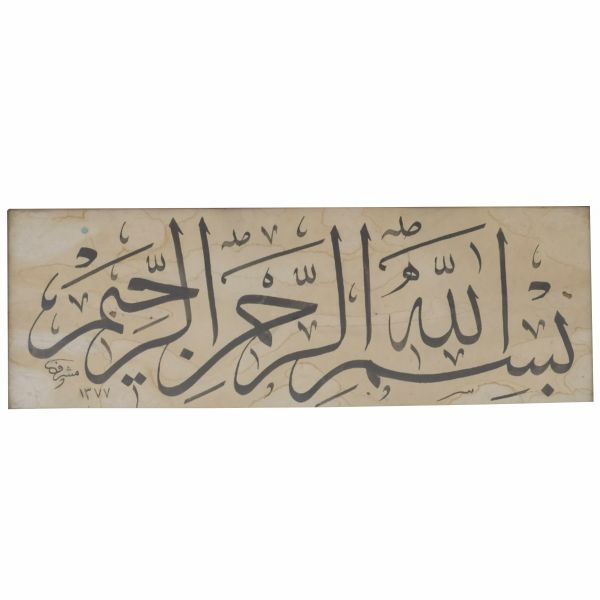 بسم الله الرحمن الرحيم
١٣٧٧